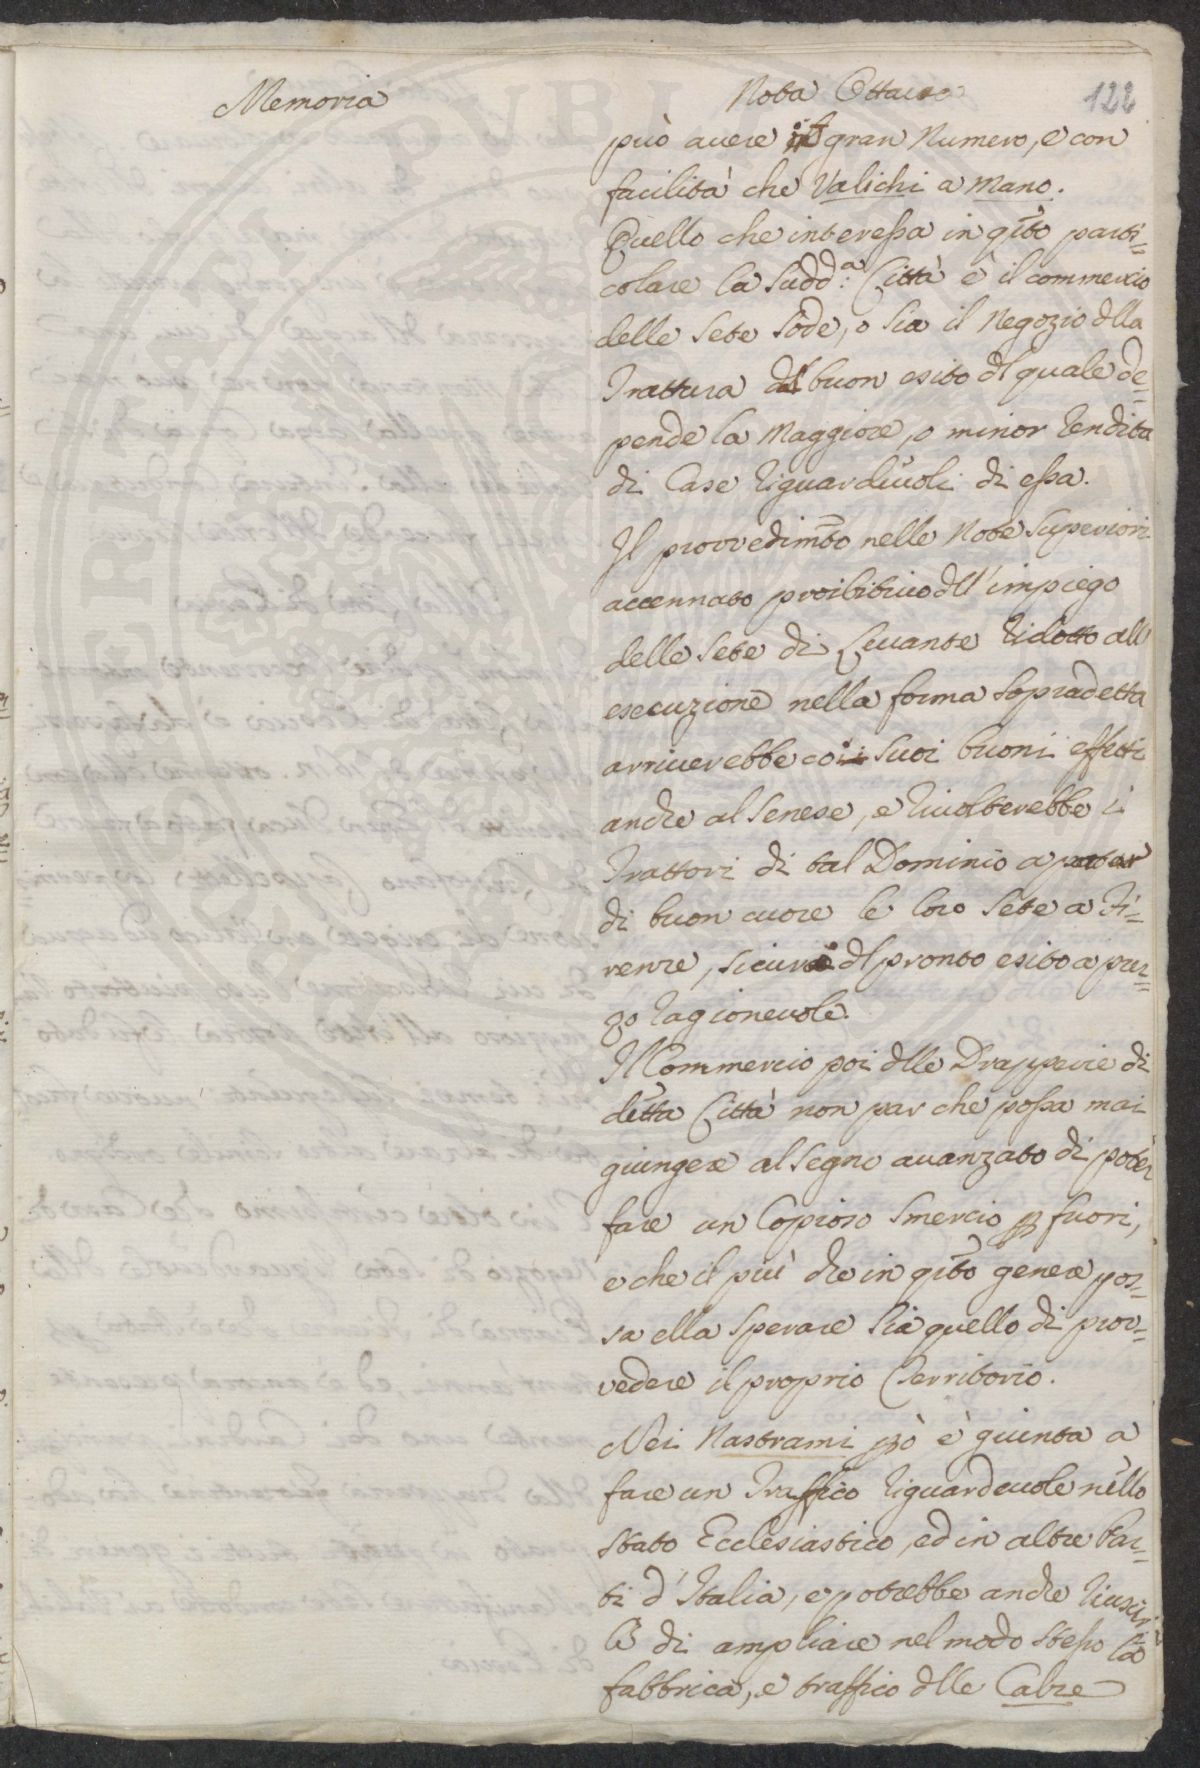 Memoria
Nota Ottava
122
può avere in gran Numero, e con
facilità che Valichi a Mano.
Quello che interessa in qsto parti=
colare la Sudd.a Città è il commercio
delle Sete Sode, o sia il Negozio dlla
Trattura dal buon esito dl quale de=
pende la Maggiore, o minor Rendita
di Case Riguardevoli di essa.
Il provvedimto nelle Note Superiori
accennato proibitivo dll' impiego
delle Sete di Levante Ridotto all
esecuzione nella forma Sopradetta
arriverebbe coi Suoi buoni effetti
anche al Senese, e Rivolterebbe i
Trattori di tal Dominio a
di buon cuore le loro Sete a Fi=
renze, Sicuri dl pronto esito a prez=
zo Ragionevole.
Il Commercio poi dlle Drapperie di
detta Città non par che possa mai
giungere al Segno avanzato di poter
fare un Copioso Smercio p fuori,
e che il più che in qsto genere pos=
sa ella Sperare Sia quello di prov=
vedere il proprio Territorio.
Nei Nastrami pò è giunta a
fare un Traffico Riguardevole nello
Stato Ecclesiastico, ed in altre Par=
ti d'Italia, e potrebbe anche Riuscir
le di ampliare nel modo stesso la
fabbrica, e traffico dlle Calze